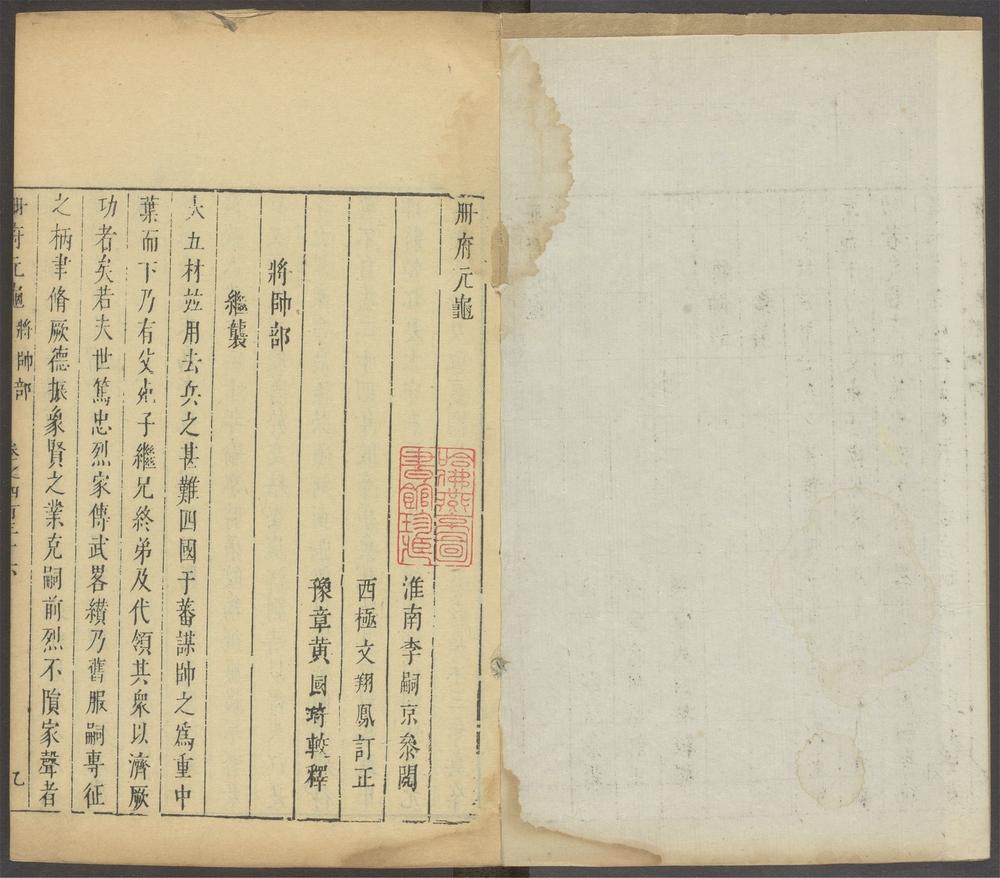 冊府元龜
哈佛燕京圖
書館珍藏
淮南李嗣京叅閱
西極文翔鳳訂正
豫章黃國琦較釋
將帥部
繼襲
夫五材竝用去兵之甚難四國于蕃謀帥之爲重中
葉而下乃有父死子繼兄終弟及代領其衆以濟厥
功者矣若夫世篤忠烈家傳武畧纉乃舊服嗣專征
之柄聿脩厥德振象賢之業克嗣前烈不隤家聲者
冊府元龜 將帥部 卷之四百三十六